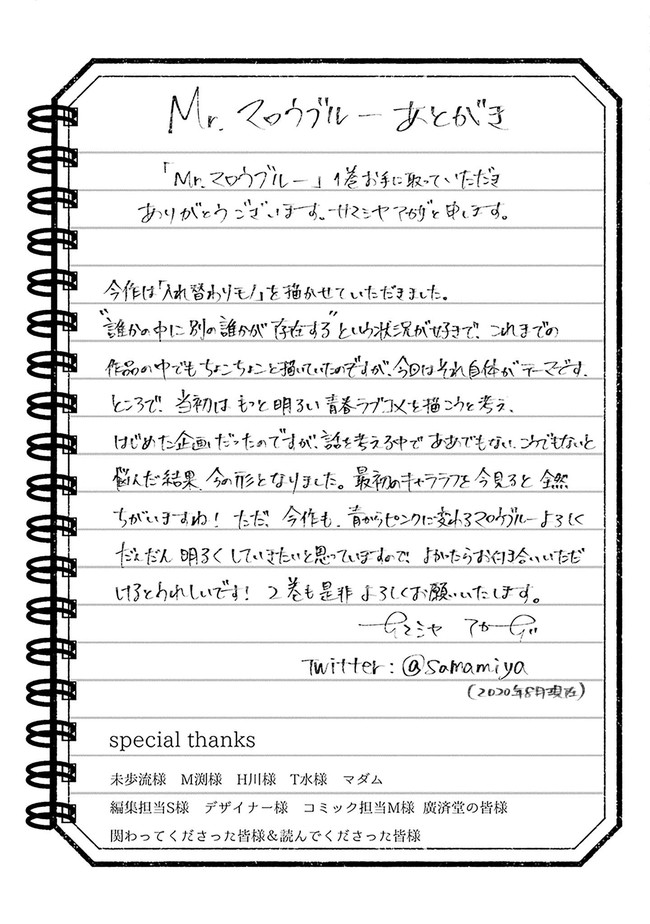 Mr.マロウブルーあとがき
「Mr.マロウブルー」1巻お手に取っていただき
ありがとうございます。サマミヤアカザと申します。
今作は「入れ替わりモノ」を描かせていただきました。
"誰かの中に別の誰かが存在する"という状況が好きで、これまでの
作品の中でもちょこちょこと描いていたのですが、今回はそれ自体がテーマです。
ところで、当初はもっと明るい青春ラブコメを描こうと考え、
はじめた企画だったのですが、話を考える中でああでもないこうでもないと
悩んだ結果、今の形となりました。最初のキャララフを今見ると全然
ちがいますね!ただ、今作も、青からピンクに変わるマロウブルーよろしく
だんだん明るくしていきたいと思っていますので、よかったらお付き合いいただ
けるとうれしいです!2巻も是非よろしくお願いいたします。
サマミヤ アカザ
Twitter:@samamiya
(2020年8月現在)
special thanks
未歩流様 M渕様 H川様 T水様 マダム
編集担当S様 デザイナー様 コミック担当M様 廣済堂の皆様
関わってくださった皆様&読んでくださった皆様